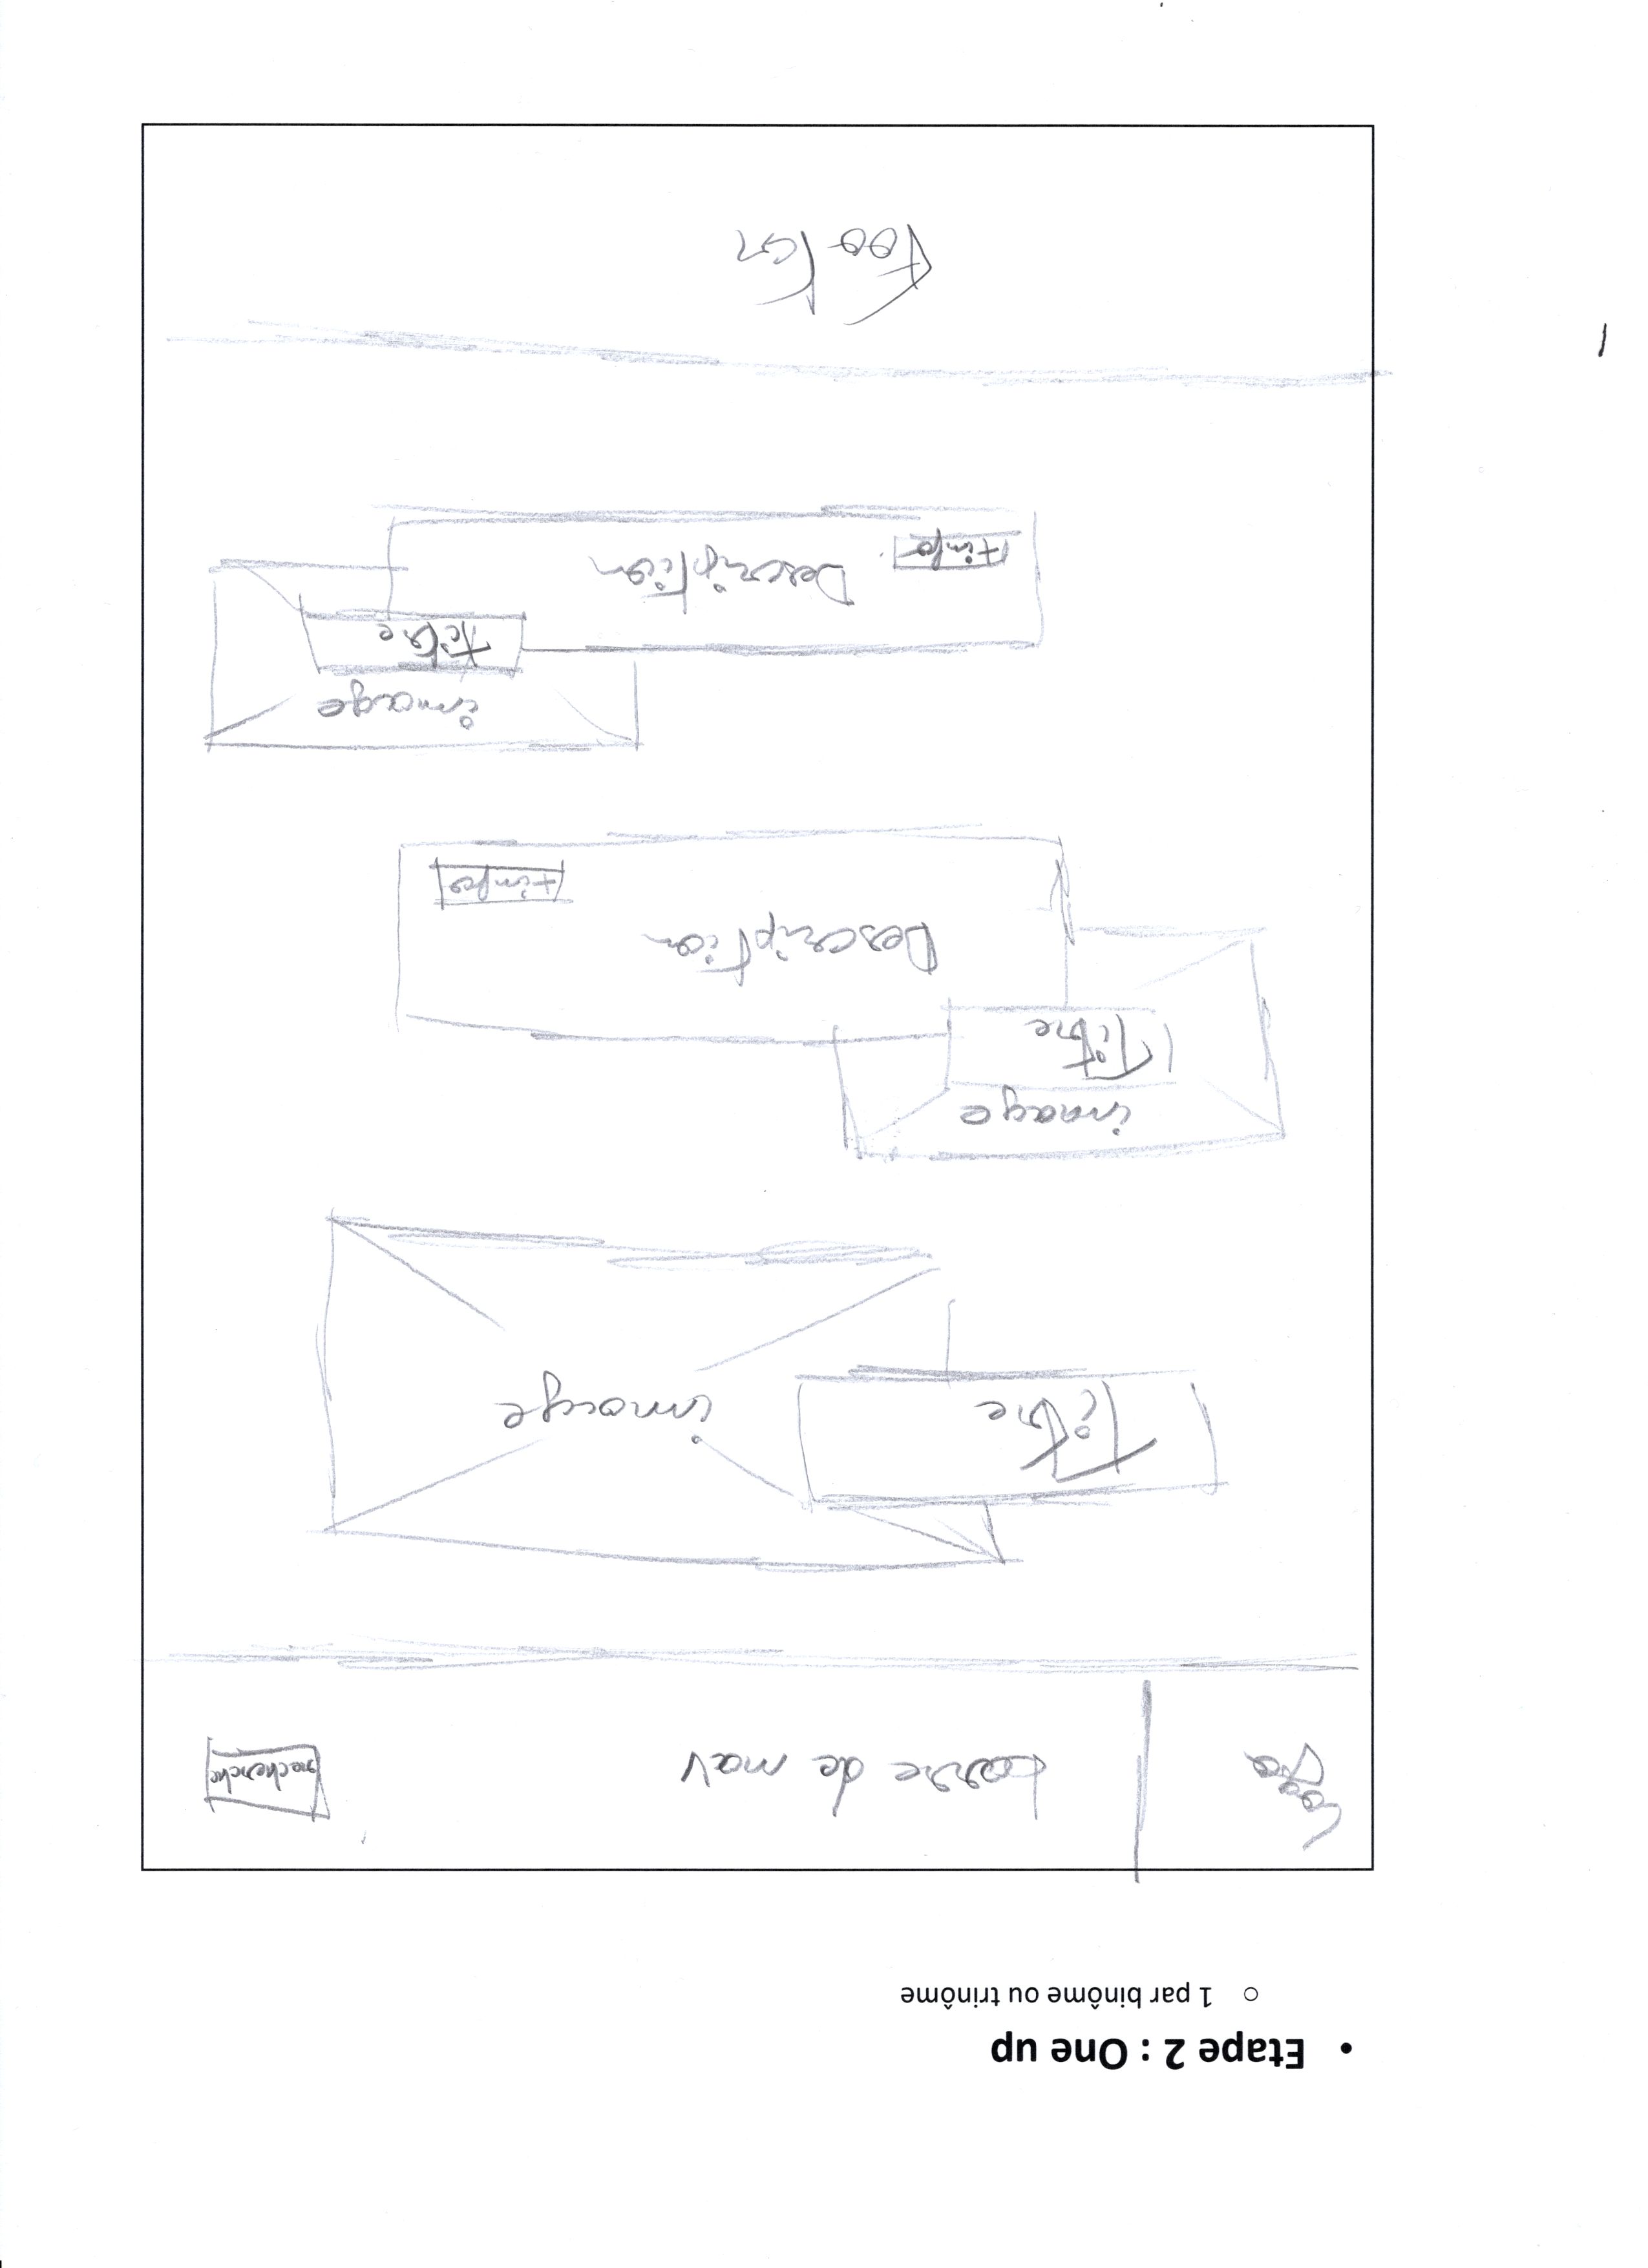 • Etape 2 : One up
o 1 par binôme ou trinôme
Logo
barre de nav
recherche
Titre
image
image
Titre
Description
+info
image
titre
Description
+info
Footer